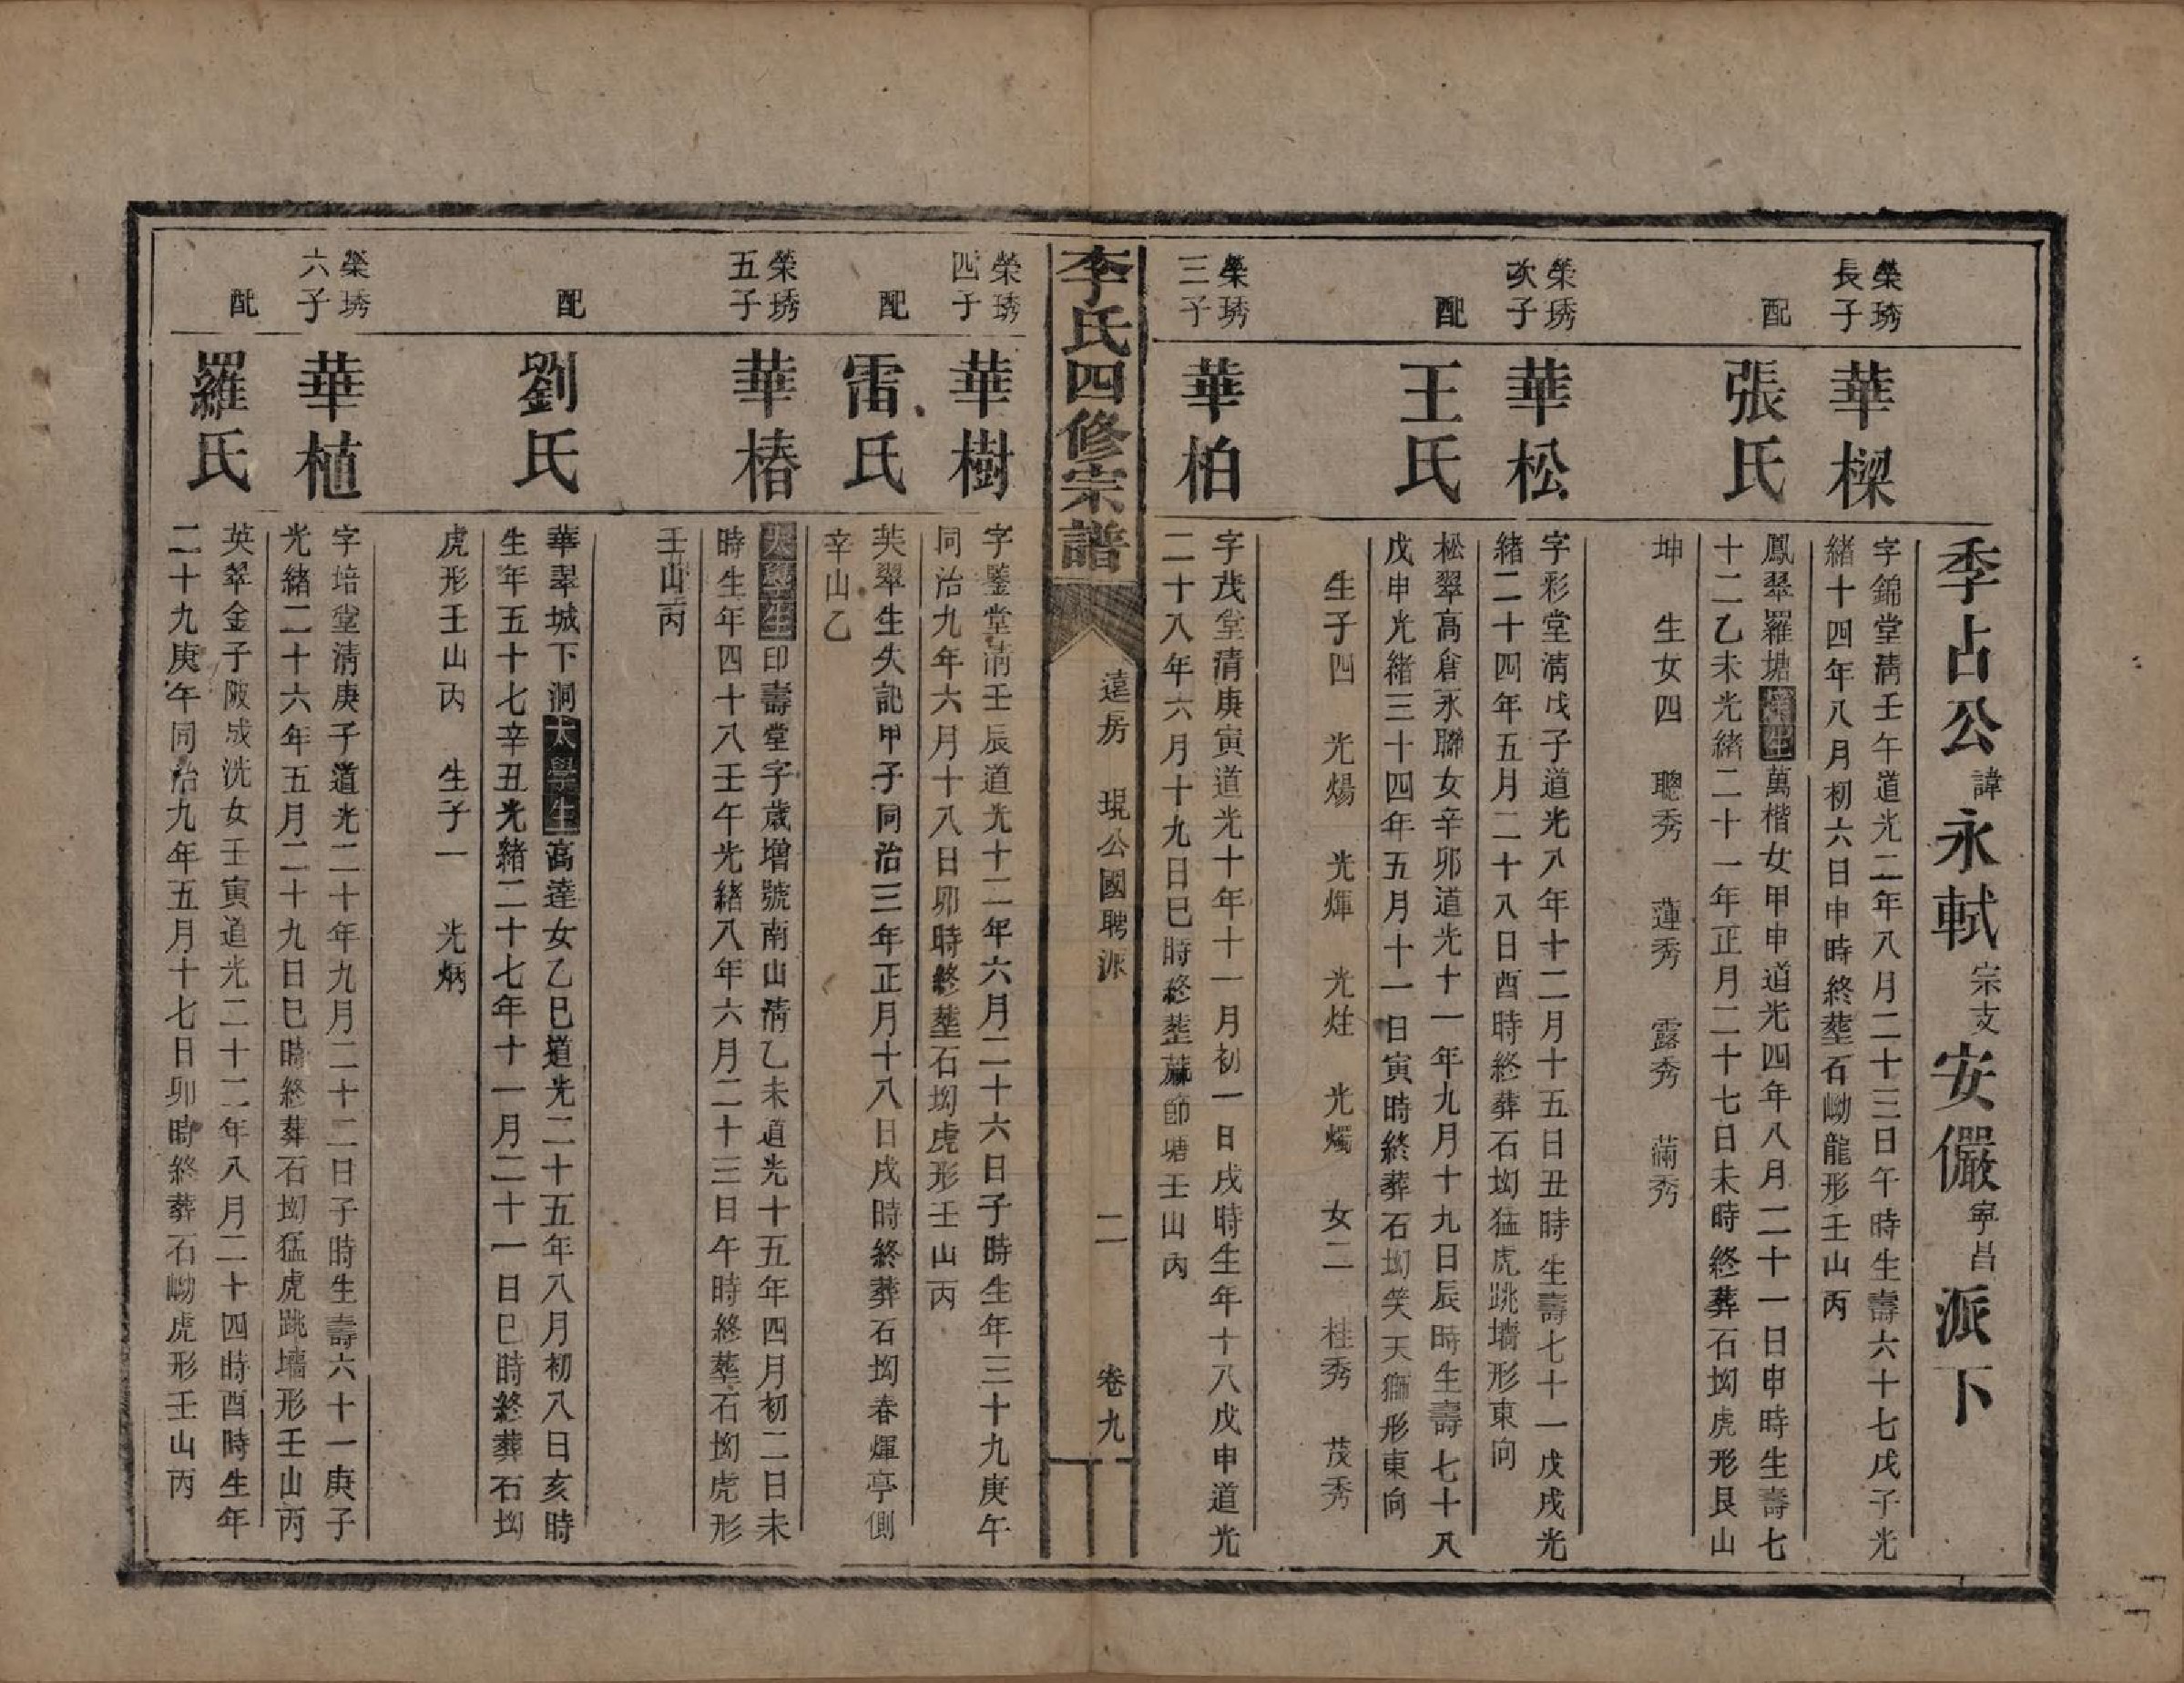 季占公諱永軾宗支安儼寧昌派下
榮琇
長子
華樑
字錦堂清壬午道光二年八月二十三日午時生壽六十七戊子光
緒十四年八月初六日申時終塟石坳龍形壬山丙
配
張氏
鳳翠羅塘萬楷女甲申道光四年八月二十一日申時生壽七
十二乙未光緒二十一年正月二十七日未時終葬石坳虎形艮山
坤 生女四 聰秀 蓮秀 露秀 蘭秀
榮琇
次子
華松
字彩堂清戊子道光八年十二月十五日丑時生壽七十一戊戌光
緒二十四年五月二十八日酉時終葬石坳猛虎跳墻形東向
配
王氏
松翠高倉永聯女辛卯道光十一年九月十九日辰時生壽七十八
戊申光緒三十四年五月十一日寅時終葬石坳笑天獅形東向
生子四 光煬 光煇 光炷 光燭 女二 桂秀 茂秀
榮琇
三子
華柏
字茂堂清庚寅道光十年十一月初一日戌時生年十八戊申道光
二十八年六月十九日巳時終塟蔴節塘壬山丙
李氏四修宗譜
遠房 琨公國聘派
二
卷九
榮琇
四子
華樹
字鑒堂清壬辰道光十二年六月二十六日子時生年三十九庚午
同治九年六月十八日卯時終塟石坳虎形壬山丙
配
雷氏
芙翠生失記甲子同治三年正月十八日戌時終葬石坳春煇亭側
辛山乙
榮琇
五子
華椿
太學生印壽堂字歲增號南山清乙未道光十五年四月初二日未
時生年四十八壬午光緒八年六月二十三日午時終塟石坳虎形
壬山丙
配
劉氏
華翠城下洞太學生高達女乙巳道光二十五年八月初八日亥時
生年五十七辛丑光緒二十七年十一月二十一日巳時終葬石坳
虎形壬山丙 生子一 光炳
榮琇
六子
華植
字培堂清庚子道光二十年九月二十二日子時生壽六十一庚子
光緒二十六年五月二十九日巳時終葬石坳猛虎跳墻形壬山丙
配
羅氏
英翠金子陂成洗女壬寅道光二十二年八月二十四時酉時生年
二十九庚午同治九年五月十七日卯時終葬石坳虎形壬山丙